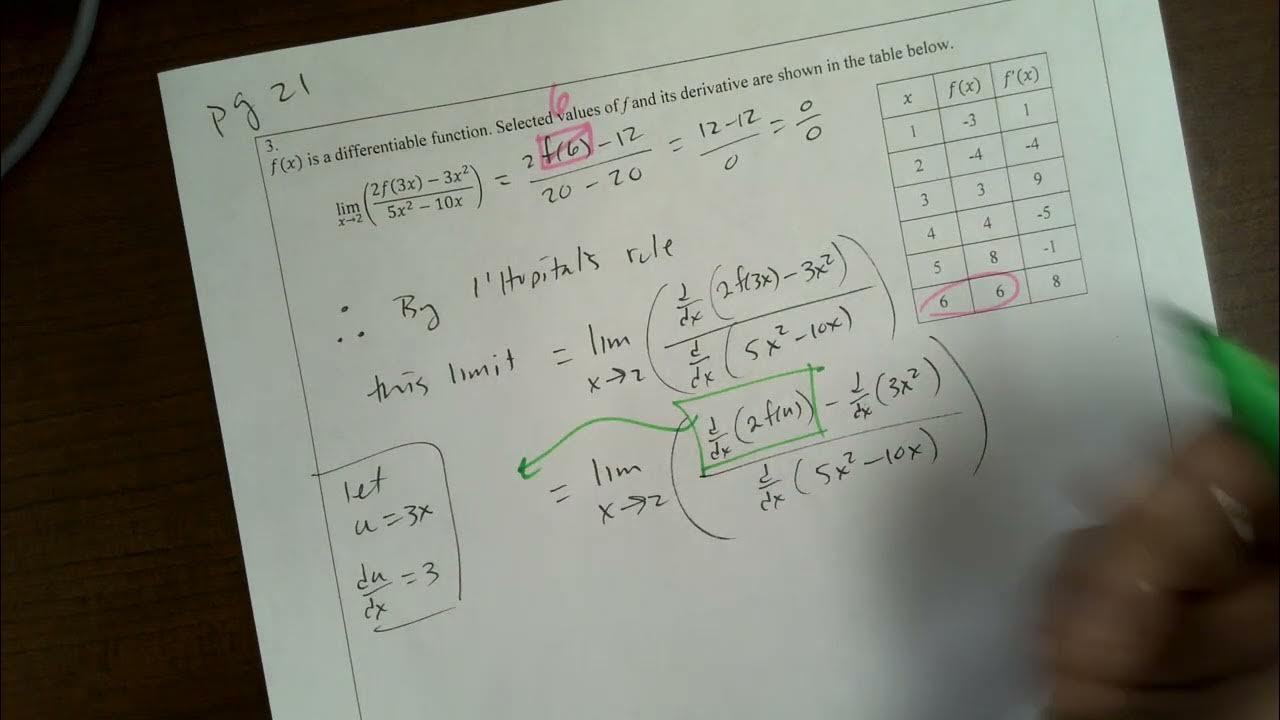 pg 21
3.
f(x) is a differentiable function. Selected values of f and its derivative are shown in the table below.
6
lim x→2 ((2f(3x) − 3x²)/(5x² − 10x)) = (2 f(6) − 12)/(20 − 20) = (12 − 12)/0 = 0/0
x f(x) f'(x)
1 -3 1
2 -4 -4
3 3 9
4 4 -5
5 8 -1
6 6 8
∴ By l'Hopital's rule
this limit = lim x→2 (d/dx (2f(3x) − 3x²) / d/dx (5x² − 10x))
= lim x→2 ((d/dx (2f(u)) − d/dx (3x²)) / d/dx (5x² − 10x))
let
u = 3x
du/dx = 3